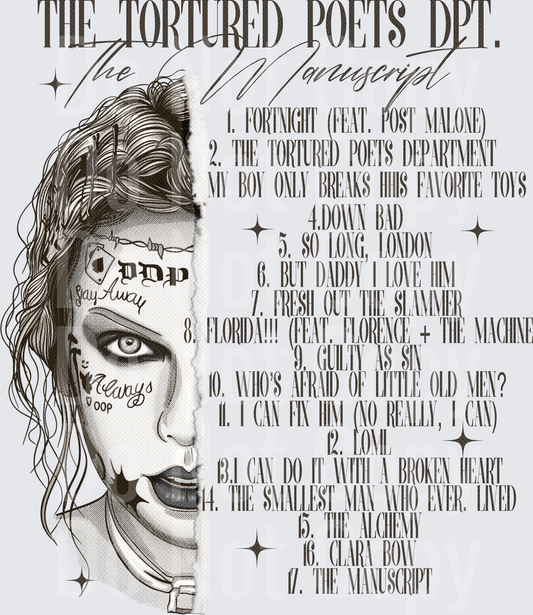 THE TORTURED POETS DPT.
The Manuscript
1. FORTNIGHT (FEAT. POST MALONE)
2. THE TORTURED POETS DEPARTMENT
MY BOY ONLY BREAKS HHIS FAVORITE TOYS
4.DOWN BAD
5. SO LONG, LONDON
6. BUT DADDY I LOVE HIM
7. FRESH OUT THE SLAMMER
8. FLORIDA!!! (FEAT. FLORENCE + THE MACHINE
9. GUILTY AS SIN
10. WHO'S AFRAID OF LITTLE OLD MEN?
11. I CAN FIX HIM (NO REALLY, I CAN)
12. LOML
13.I CAN DO IT WITH A BROKEN HEART
14. THE SMALLEST MAN WHO EVER. LIVED
15. THE ALCHEMY
16. CLARA BOW
17. THE MANUSCRIPT
A
DDP
Stay Away
Always
OOP
Do Not Copy